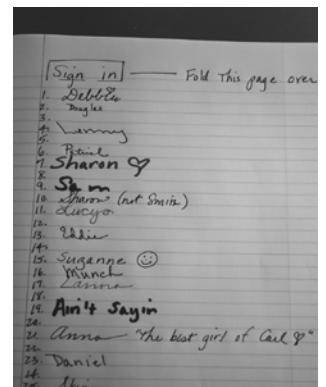 Sign in —— Fold This page over
1. Debbie
2. Douglas
3.
4. Lenny
5.
6. Patrick
7. Sharon ♡
8.
9. Sam
10. Sharon (not Smin)
11. Lucya
12.
13. Eddie
14.
15. Suzanne ☺
16. Munch
17. Lanna
18.
19. Ain't Sayin
20.
21. Anna — "The best girl of Carl ♡"
22.
23. Daniel
24.